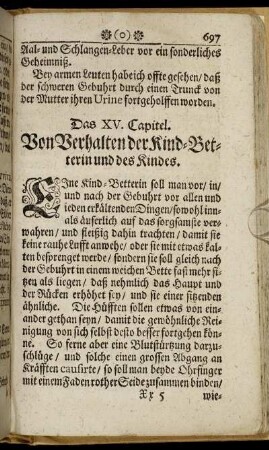 ❀ (o) ❀ 697
Aal- und Schlangen-Leber vor ein sonderliches
Geheimniß.
Bey armen Leuten habe ich offte gesehen / daß
der schweren Gebuhrt durch einen Trunck von
der Mutter ihren Urine fortgeholffen worden.
Das XV. Capitel.
Von Verhalten der Kind-Bet-
terin und des Kindes.
EIne Kind-Betterin soll man vor / in /
und nach der Gebuhrt vor allen und
ieden erkältenden Dingen / sowohl inn-
als äuserlich auf das sorgsamste ver-
wahren / und fleißig dahin trachten / damit sie
keine rauhe Lufft anwehe / oder sie mit etwas kal-
ten besprenget werde / sondern sie soll gleich nach
der Gebuhrt in einem weichen Bette fast mehr sit-
zen als liegen / daß nehmlich das Haupt und
der Rücken erhöhet sey / und sie einer sitzenden
ähnliche. Die Hüfften sollen etwas von ein-
ander gethan seyn / damit die gewöhnliche Rei-
nigung von sich selbst desto besser fortgehen kön-
ne. So ferne aber eine Blutstürtzung darzu-
schlüge / und solche einen grossen Abgang an
Kräfften causirte / so soll man beyde Ohrfinger
mit einem Faden rother Seide zusammen binden /
Xx 5 wie-